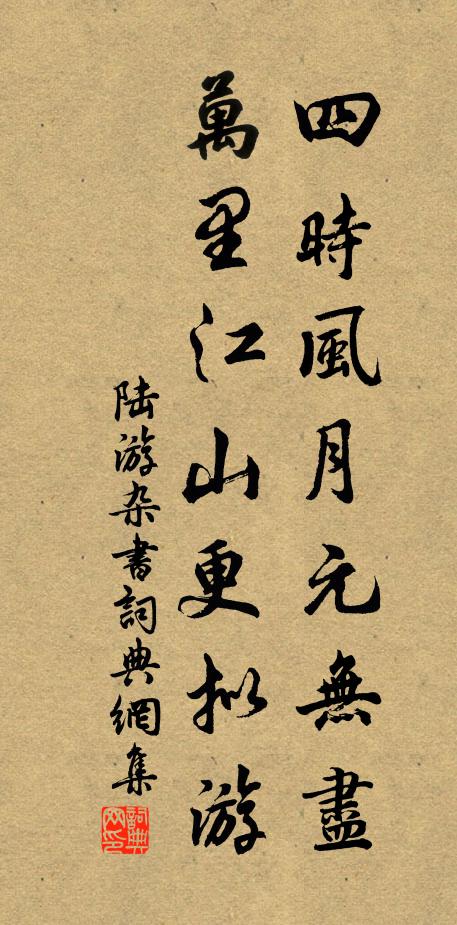 四時風月元無盡
萬里江山更拟游
陆游杂書詞典網集
詞典网印